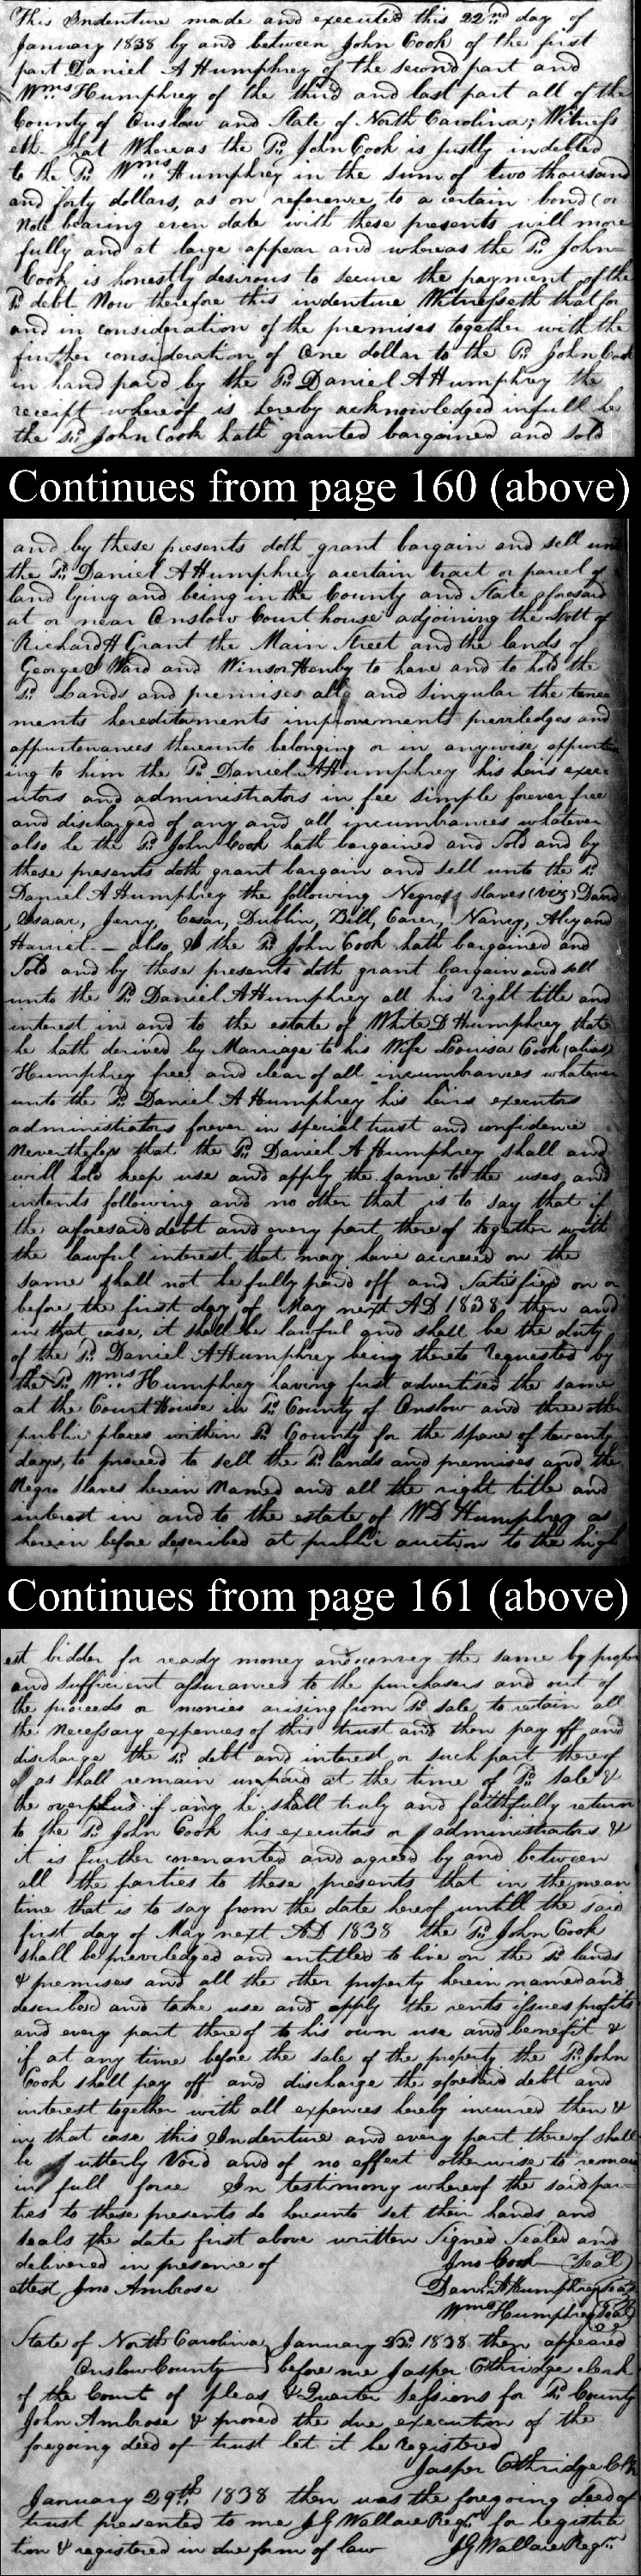 This Indenture made and executed this 22nd day of
January 1838 by and between John Cook of the first
part Daniel A Humphrey of the second part and
Wms Humphrey of the third and last part all of the
County of Onslow and State of North Carolina; Witness
eth that Whereas the sd. John Cook is justly indebted
to the sd. Wms Humphrey in the sum of two thousand
and forty dollars, as on reference to a certain bond (or
Note bearing even date with these presents will more
fully and at large appear and whereas the sd. John
Cook is honestly desirous to secure the payment of the
sd. debt Now therefore this indenture Witnesseth that for
and in consideration of the premises together with the
further consideration of One dollar to the sd. John Cook
in hand paid by the sd. Daniel A Humphrey the
receipt whereof is hereby acknowledged in full he
the sd. John Cook hath granted bargained and sold
Continues from page 160 (above)
and by these presents doth grant bargain and sell unto
the sd. Daniel A Humphrey a certain tract or parcel of
land lying and being in the County and State aforesaid
at or near Onslow Court house adjoining the Lott of
Richard H Grant the Main Street and the lands of
George S Ward and Winsor Hanby to have and to hold the
sd. Lands and premises all and singular the tene
ments hereditaments improvements previledges and
appurtenances thereunto belonging or in anywise appurtain
ing to him the sd. Daniel A Humphrey his heirs exec
utors and administrators in fee simple forever free
and discharged of any and all incumbrances whatever
also he the sd. John Cook hath bargained and Sold and by
these presents doth grant bargain and sell unto the sd.
Daniel A Humphrey the following Negro slaves (viz) David
, Isaac, Jerry, Cesar, Dublin, Bill, Carer, Nancy, Alcy and
Harriet - also & the sd. John Cook hath bargained and
Sold and by these presents doth grant bargain and sell
unto the sd. Daniel A Humphrey all his right title and
interest in and to the estate of White D Humphrey that
he hath derived by Marriage to his Wife Louisa Cook (alias)
Humphrey free and clear of all incumbrances whatever
unto the sd. Daniel A Humphrey his heirs executors
administrators forever in special trust and confidence
Nevertheless that the sd. Daniel A Humphrey shall and
will hold keep use and apply the same to the uses and
intents following and no other that is to say that if
the aforesaid debt and every part thereof together with
the lawful interest that may have accrued on the
same shall not be fully paid off and Satisfied on or
before, the first day of May next AD 1838, then and
in that case, it shall be lawful and shall be the duty
of the sd. Daniel A Humphrey being thereto requested by
the sd. Wms Humphrey having first advertised the same
at the Court House in sd. County of Onslow and three other
public places within sd. County for the space of twenty
days, to proceed to sell the sd. lands and premises and the
Negro slaves herein Named and all the right title and
interest in and to the estate of WD Humphrey as
herein before described at public auction to the high
Continues from page 161 (above)
est bidder for ready money and convey the same by proper
and sufficient assurances to the purchasers and out of
the proceeds or monies arising from sd. sale to retain all
the necessary expences of this trust and then pay off and
discharge the sd. debt and interest or such part thereof
as shall remain unpaid at the time of sd. sale &
the overplus if any he shall truly and faithfully return
to the sd. John Cook his executors or administrators &
it is further covenanted and agreed by and between
all the parties to these presents that in the mean
time that is to say from the date hereof untill the said
first day of May next AD 1838 the sd. John Cook
shall be previledged and entitled to live on the sd. lands
& premises and all the other property herein named and
described and take use and apply the rents issues profits
and every part thereof to his own use and benefit &
if at any time before the sale of the property the sd. John
Cook shall pay off and discharge the aforesaid debt and
interest together with all expences hereby incurred then &
in that case this Indenture and every part thereof shall
be utterly Void and of no effect otherwise to remain
in full force In testimony whereof the said par
ties to these presents do hereunto set their hands and
seals the date first above written Signed Sealed and
delivered in presence of Jno Cook (Seal)
attest Jno Ambrose Danl. A Humphrey (Seal)
Wms Humphrey (Seal)
State of North Carolina } January 23d. 1838 then appeared
Onslow County } before me Jasper Ethridge clerk
of the Court of pleas & Quarter Sessions for sd. County
John Ambrose & proved the due execution of the
foregoing deed of trust let it be registered
Jasper Ethridge Clk
January 29th. 1838 then was the foregoing deed of
trust presented to me JG Wallace Regr. for registra
tion & registered in due form of law JG Wallace Regr.